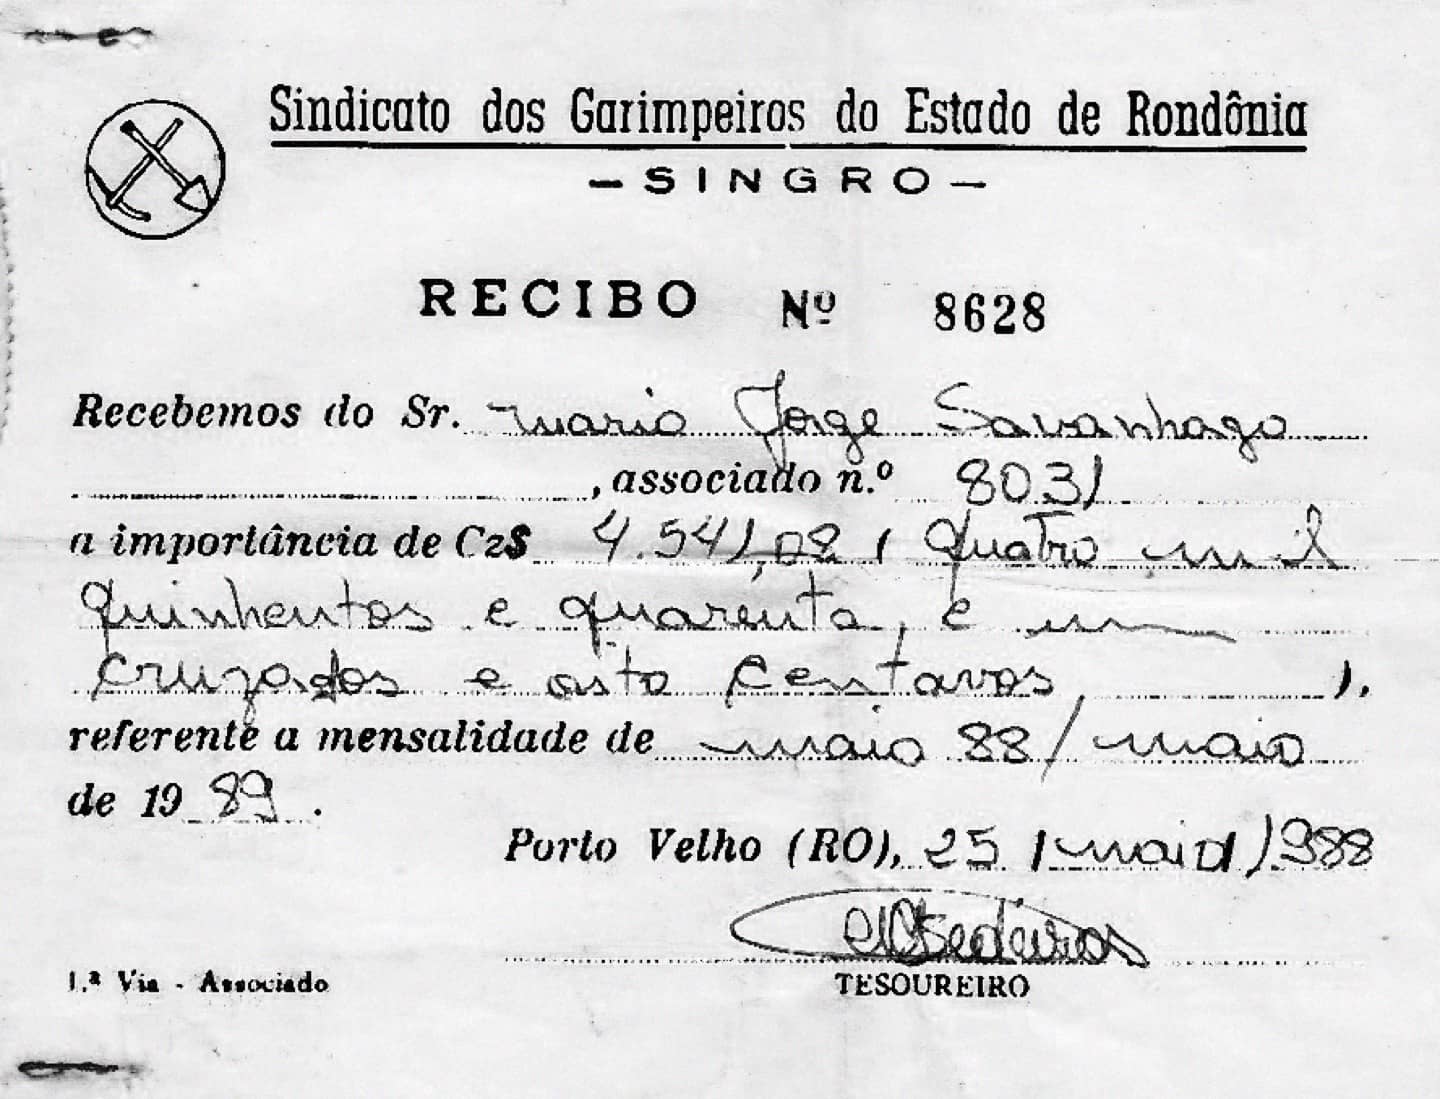 Sindicato dos Garimpeiros do Estado de Rondônia
- SINGRO -
RECIBO Nº 8628
Recebemos do Sr. Mario Jorge Savanhago
, associado n.º 8031
a importância de Cz$ 4.541,08 ( Quatro mil
quinhentos e quarenta, e um
cruzados e oito centavos, ).
referente a mensalidade de maio 88/ maio
de 19 89 .
Porto Velho (RO), 25 / maio / 988
TESOUREIRO
1.ª Via - Associado